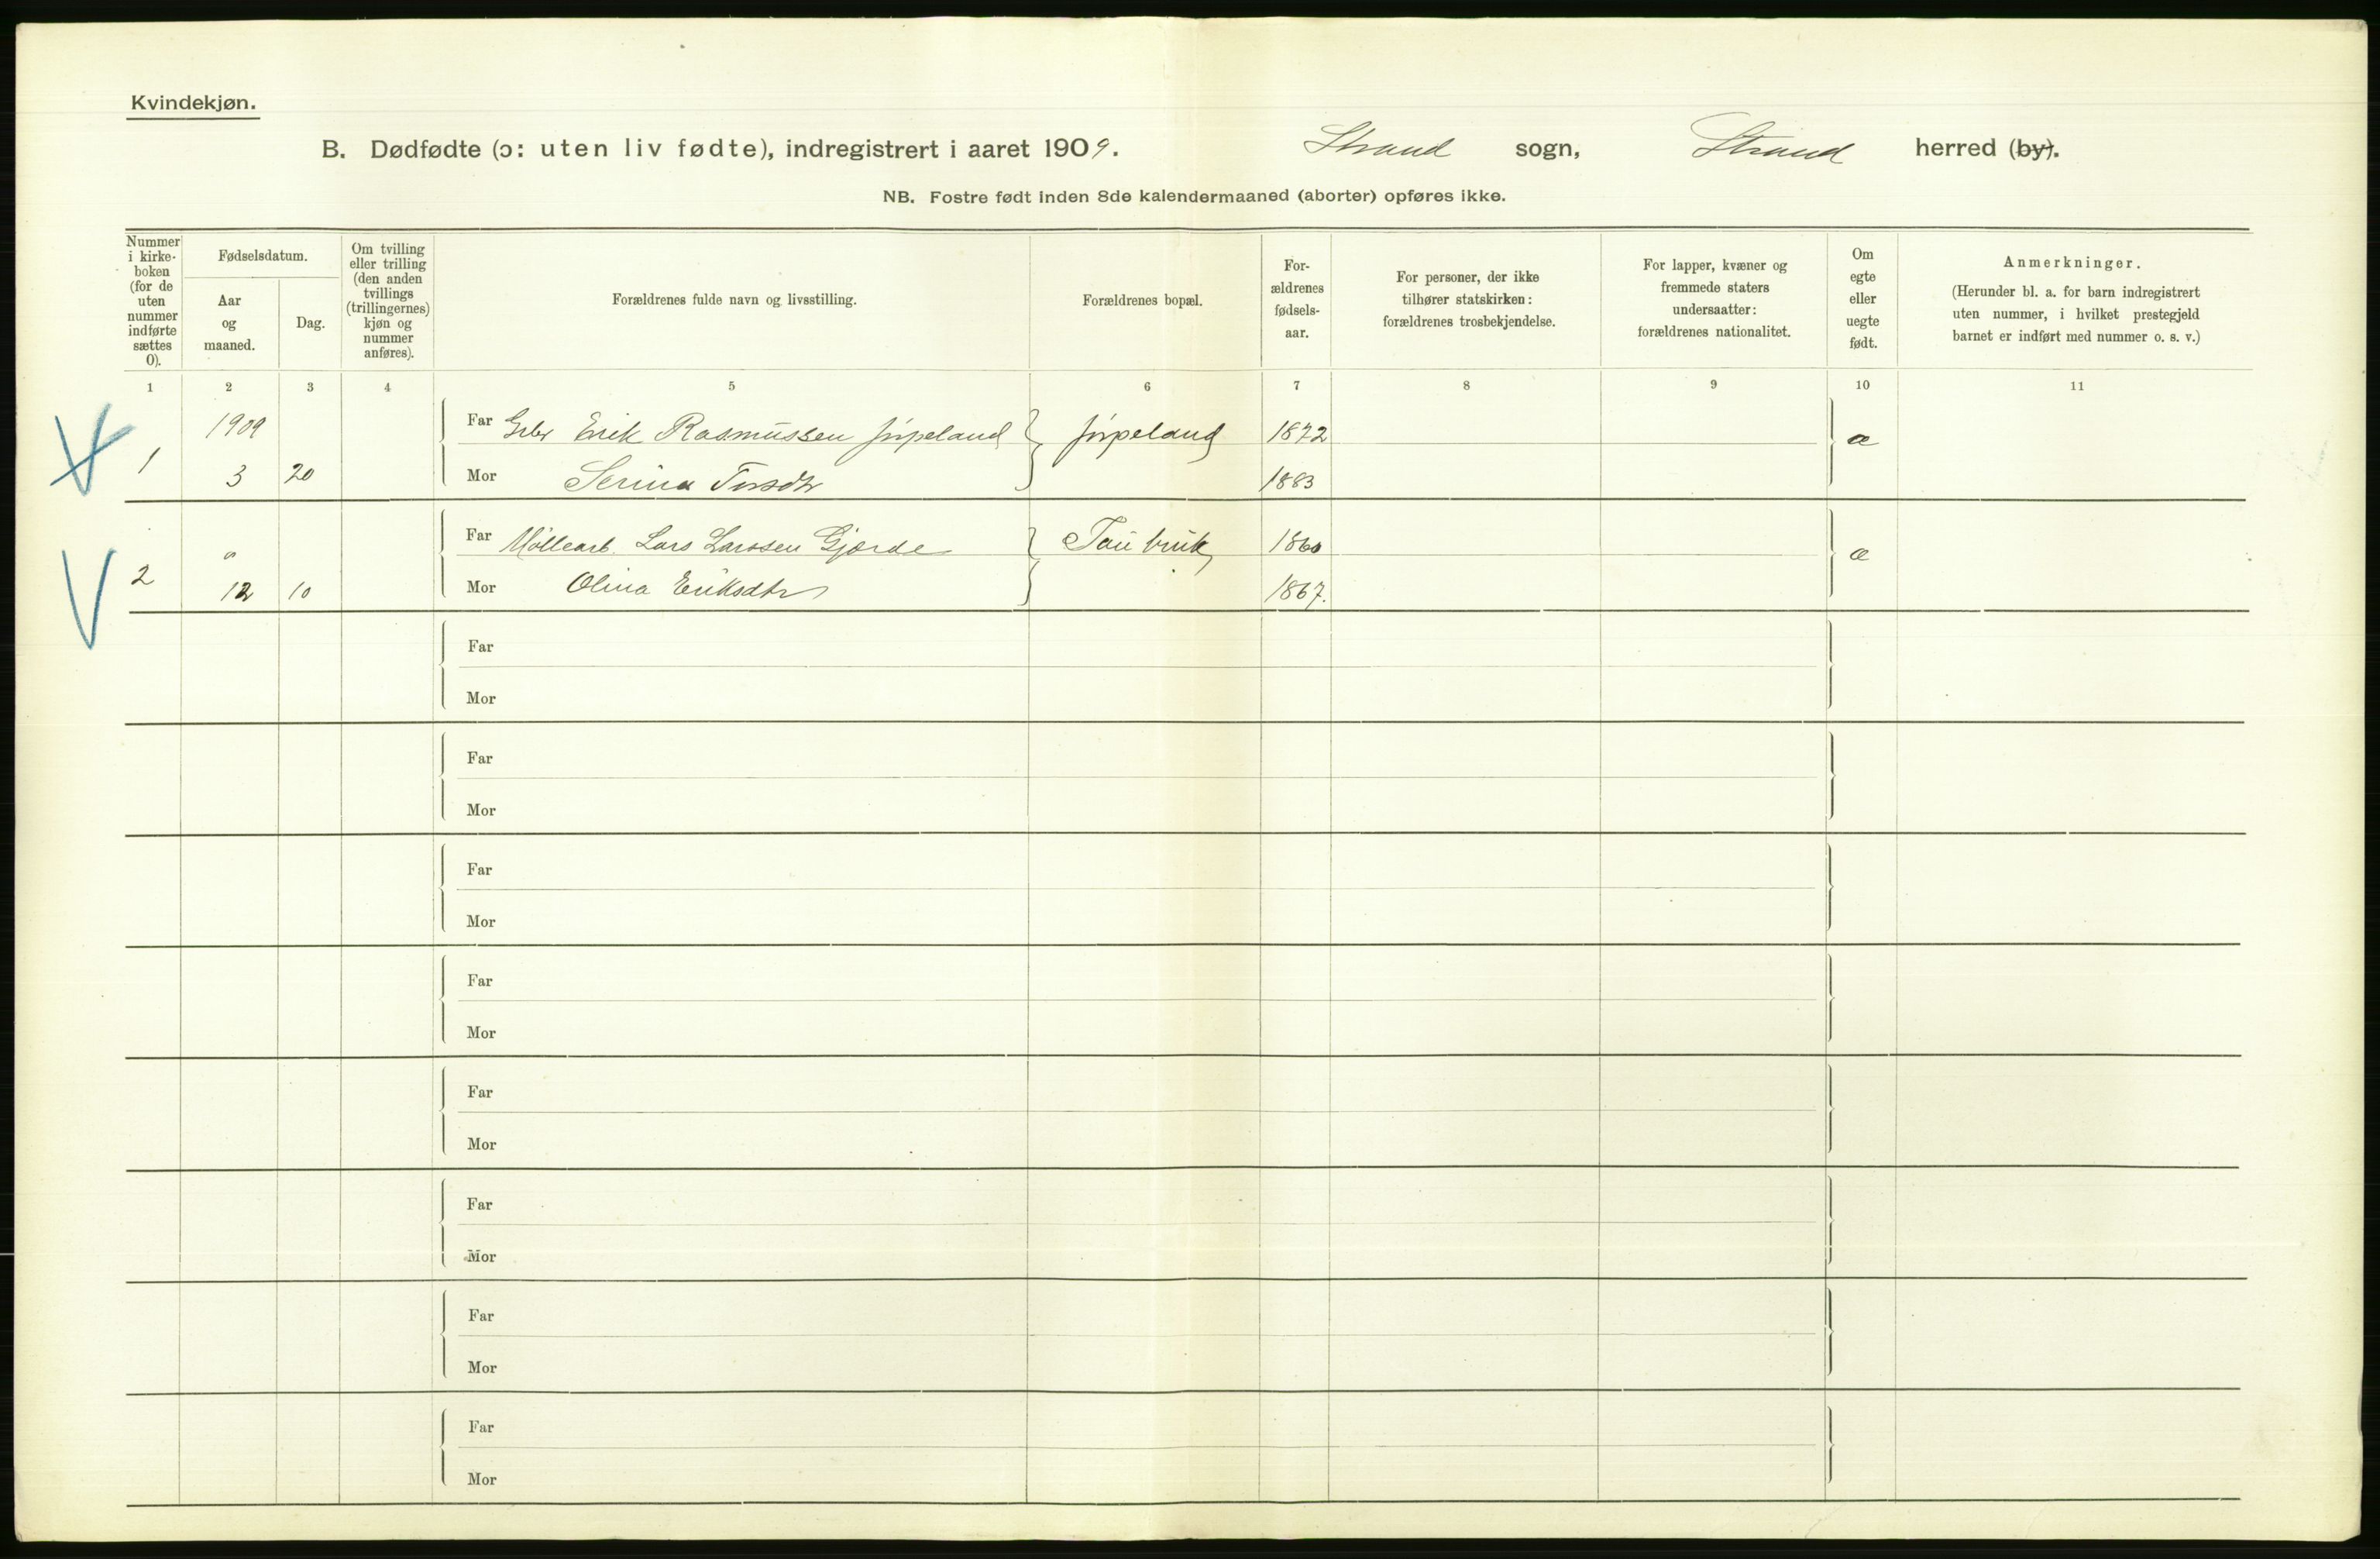 Kvindekjøn.
B. Dødfødte (ɔ: uten liv fødte), indregistrert i aaret 1909. Strand sogn, Strand herred (by).
NB. Fostre født inden 8de kalendermaaned (aborter) opføres ikke.
Nummer
i kirke-
boken
(for de
uten
nummer
indførte
sættes
0).
Fødselsdatum.
Aar
og
maaned.
Dag.
Om tvilling
eller trilling
(den anden
tvillings
(trillingernes)
kjøn og
nummer
anføres).
Forældrenes fulde navn og livsstilling.
Forældrenes bopæl.
For-
ældrenes
fødsels-
aar.
For personer, der ikke
tilhører statskirken:
forældrenes trosbekjendelse.
For lapper, kvæner og
fremmede staters
undersaatter:
forældrenes nationalitet.
Om
egte
eller
uegte
født.
Anmerkninger.
(Herunder bl. a. for barn indregistrert
uten nummer, i hvilket prestegjeld
barnet er indført med nummer o. s. v.)
1 2 3 4 5 6 7 8 9 10 11
1909 Far Gbr Erik Rasmussen Jørpeland Jørpeland 1872 æ
1 3 20 Mor Serina Torsdtr 1883
" Far Møllearb. Lars Larssen Gjærde Tau bruk 1860 æ
2 12 10 Mor Olina Eriksdtr 1867.
Far
Mor
Far
Mor
Far
Mor
Far
Mor
Far
Mor
Far
Mor
Far
Mor
Far
Mor